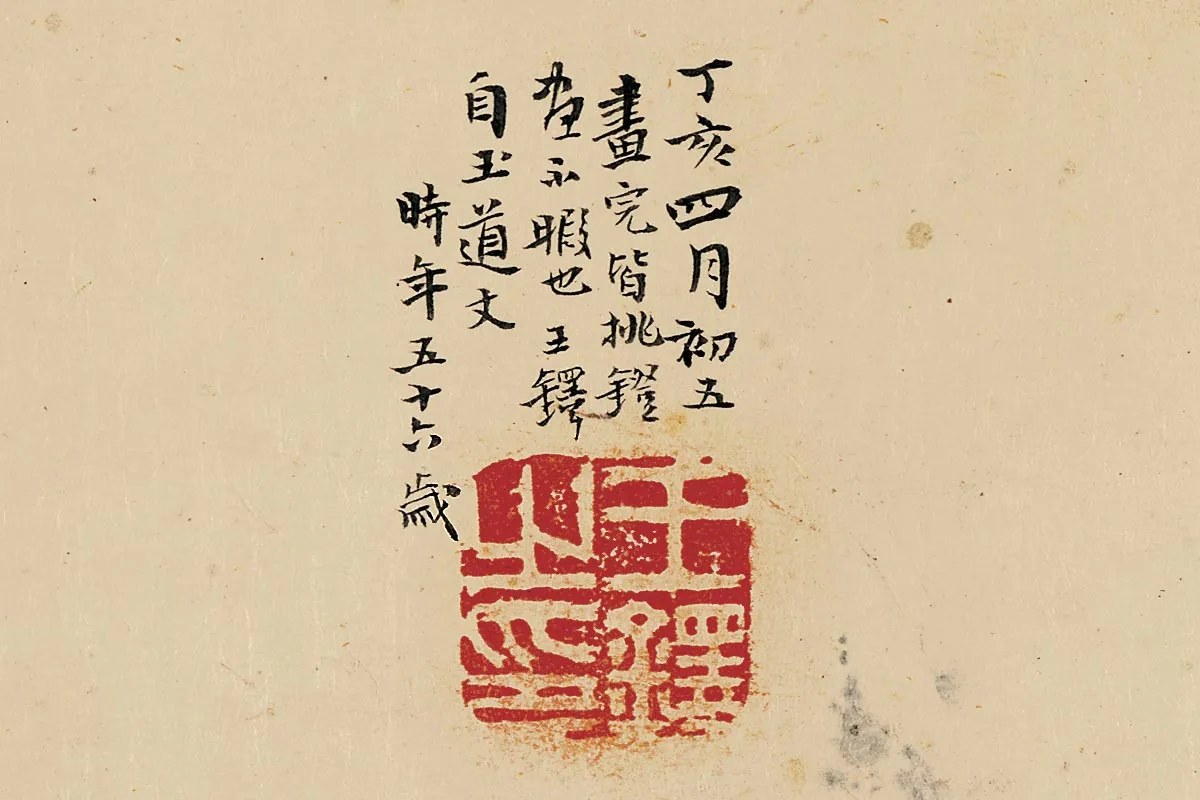 丁亥四月初五
畫完皆挑鐙
晝不暇也王鐸
自玉道丈
時年五十六歲
王鐸
之印